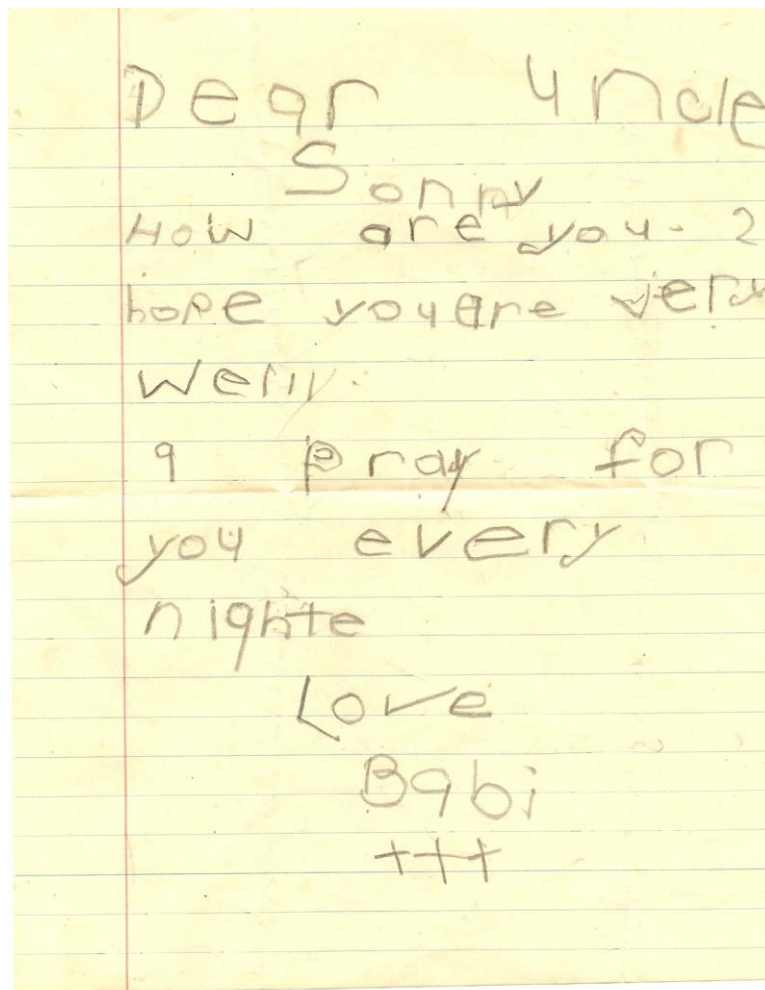 Dear Uncle
Sonny
How are you. I
hope you are very
welll.
I pray for
you every
nighte
Love
Babi
+++